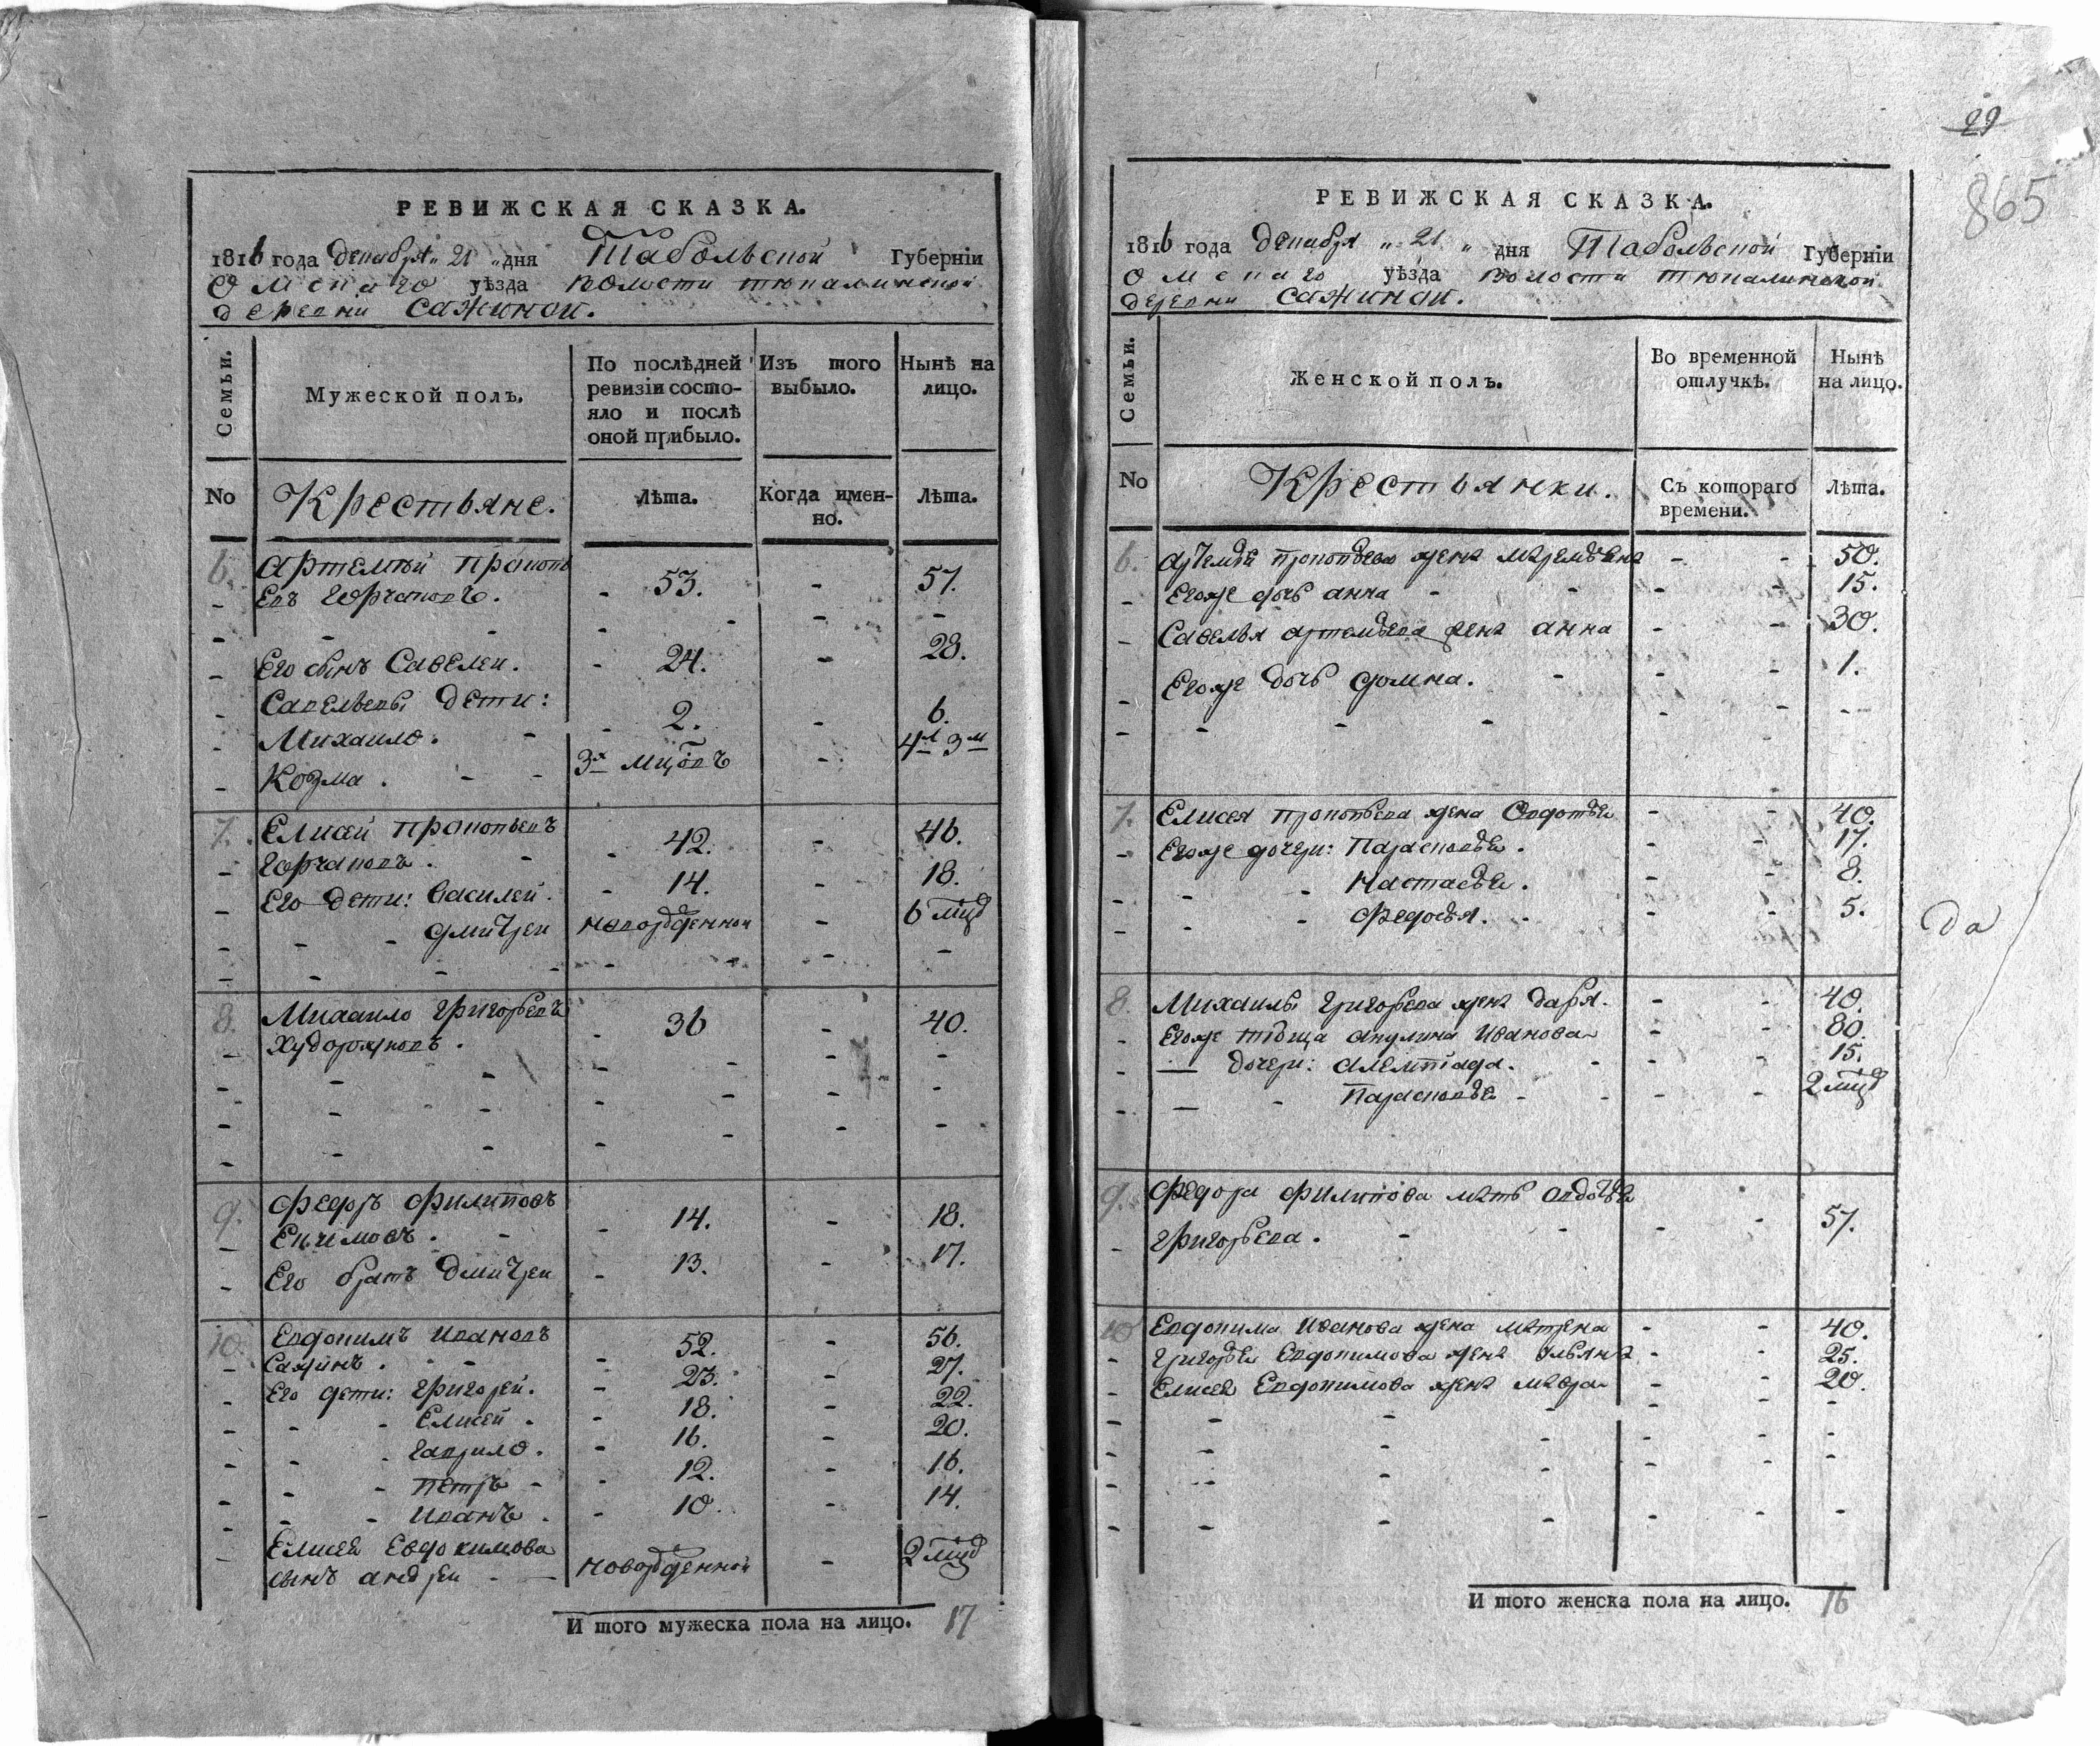 РЕВИЖСКАЯ СКАЗКА.
1816 года декабря „ 21 „ дня Табольской Губерніи
Омскаго уѣзда волости тюкалинской
деревни сажиной.
Семьи.
Мужеской полъ.
По послѣдней ревизіи состояло и послѣ оной прибыло.
Изъ того выбыло.
Нынѣ на лицо.
No
Крестьяне.
Лѣта.
Когда именно.
Лѣта.
6. Артемѣй Прокопь
евъ Горчаковъ. - 53. - 57.
Его сынъ Савелеи. - 24. - 28.
Савельевы дети:
Михаило. - 2. - 6.
Козма. - - 3х мцовъ - 4л 3м
7. Елисей Прокопьевъ
Горчаковъ. - 42. - 46.
Его дети: Василей. - 14. - 18.
- - Дмитреи новорожденнои - 6 мцъ
8. Михаило Григорьевъ - 36 - 40.
Худорожковъ.
9. Федоръ Филиповъ
Екимовъ. - 14. - 18.
Его братъ Дмитреи - 13. - 17.
10. Евдокимъ Ивановъ
Сажинъ. - 52. - 56.
Его дети: Григорей. - 23. - 27.
- - Елисей. - 18. - 22.
- - Гаврило. - 16. - 20.
- - Петръ - - 12. - 16.
- - Иванъ. - 10. - 14.
Елисея Евдокимова
сынъ андреи - - новорожденной - 2 мцъ
И того мужеска пола на лицо. 17
29
865
РЕВИЖСКАЯ СКАЗКА.
1816 года декабря „ 21 „ дня Табольской Губерніи
Омскаго уѣзда волости тюкалинской
деревни сажиной.
Семьи.
Женской полъ.
Во временной отлучкѣ.
Нынѣ на лицо.
No
Крестьянки.
Съ котораго времени.
Лѣта.
6. Артемья Прокопьева жена - - 50.
Егоже дочь анна - - - - 15.
Савелья Артемьева жена анна - - 30.
Егоже дочь домна. - - - 1.
7. Елисея Прокопьева жена Овдотья - - 40.
Егоже дочери: Парасковья. - - 17.
- - Настасья. - - 8.
- - Федосья. - - - 5.
да
8. Михаилы Григорьева жена дарья. - - 40.
Егоже тѣща акулина Иванова - - 80.
— дочери: - - - 15.
— - Парасковья - - - - 2 мцъ
9. Федора Филипова мать овдотья
Григорьева. - - - - 57.
10 Евдокима Иванова жена матрена - - 40.
Григорья Евдокимова жена ульяна - - 25.
Елисея Евдокимова жена мавра - - 20.
И того женска пола на лицо. 16